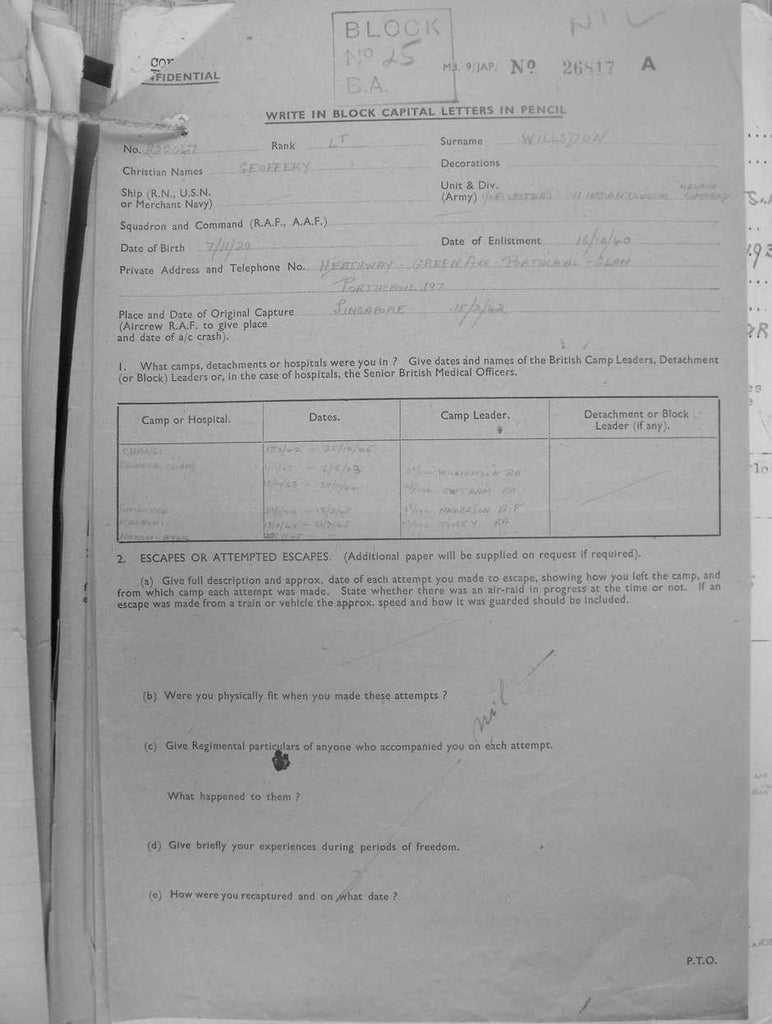 BLOCK
Nº 25
B.A.
NIL
CONFIDENTIAL
M.I. 9/JAP/ Nº 26817 A
WRITE IN BLOCK CAPITAL LETTERS IN PENCIL
No. Rank LT Surname WILLSDON
Christian Names GEOFFERY Decorations
Ship (R.N., U.S.N. or Merchant Navy)
Unit & Div. (Army) 11 INDIAN DIVISION MALAYA COMMAND
Squadron and Command (R.A.F., A.A.F.)
Date of Birth 7/11/20 Date of Enlistment 16/10/40
Private Address and Telephone No. HEATHWAY - GREEN AVE - PORTHCAWL - GLAM
PORTHCAWL 197
Place and Date of Original Capture SINGAPORE 15/2/42
(Aircrew R.A.F. to give place
and date of a/c crash).
1. What camps, detachments or hospitals were you in ? Give dates and names of the British Camp Leaders, Detachment
(or Block) Leaders or, in the case of hospitals, the Senior British Medical Officers.
Camp or Hospital. Dates. Camp Leader. Detachment or Block Leader (if any).
CHANGI
WILLIAMSON RA
OWTRAM RA
ANDERSON AIF
TOOSEY RA
2. ESCAPES OR ATTEMPTED ESCAPES. (Additional paper will be supplied on request if required).
(a) Give full description and approx. date of each attempt you made to escape, showing how you left the camp, and
from which camp each attempt was made. State whether there was an air-raid in progress at the time or not. If an
escape was made from a train or vehicle the approx. speed and how it was guarded should be included.
(b) Were you physically fit when you made these attempts ?
nil
(c) Give Regimental particulars of anyone who accompanied you on each attempt.
What happened to them ?
(d) Give briefly your experiences during periods of freedom.
(e) How were you recaptured and on what date ?
P.T.O.